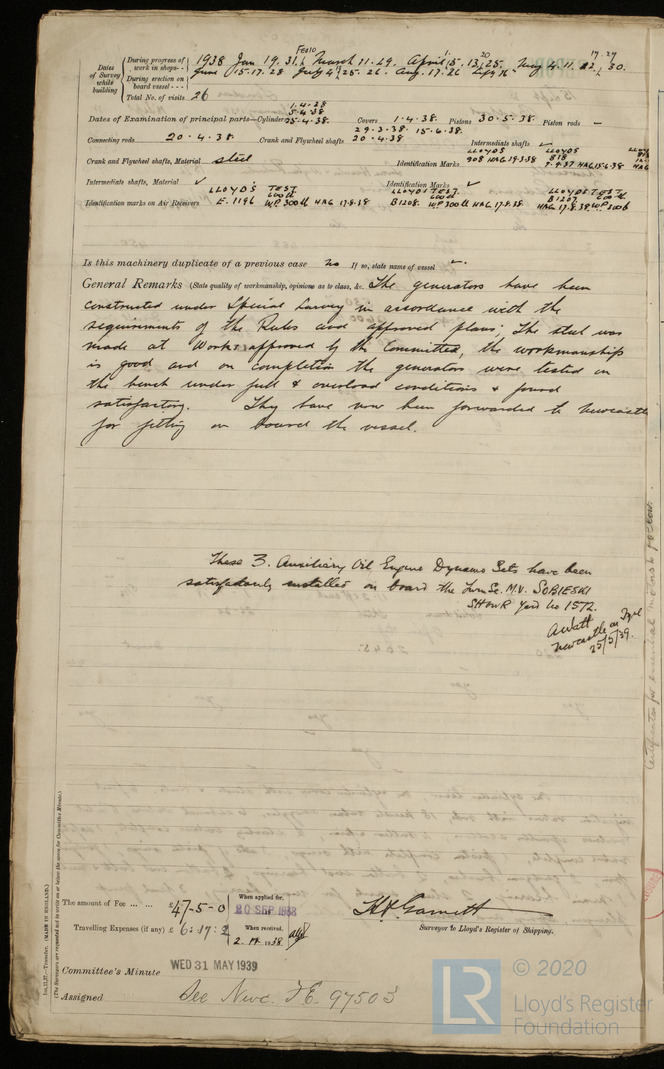 Dates of Survey while building
During progress of work in shops - -
1938 Jan 19. 31. Feb 10 March 11. 29. April 1. 5. 13. 20 25. May 4. 11. 17. 22. 27. 30.
During erection on board vessel - - -
June 15. 17. 28 July 4. 25. 26. Aug. 17. 26 Sept 16
Total No. of visits 26
Dates of Examination of principal parts—Cylinders 1.4.38 5.4.38 25.4.38. Covers 1.4.38. Pistons 30.5.38. Piston rods —
29.3.38. 15.6.38.
Connecting rods 20.4.38. Crank and Flywheel shafts 20.4.38 Intermediate shafts ✓
Crank and Flywheel shafts, Material steel Identification Marks LLOYDS 908 HAG 19.3.38 LLOYDS 818 7.9.37 HAG 15.6.38
Intermediate shafts, Material ✓ Identification Marks ✓
Identification marks on Air Receivers LLOYD'S TEST 600 lb E.1196 W.P. 300 lb HAG 17.8.38 LLOYD'S TEST. 600 lb B1208. W.P. 300 lb HAG. 17.8.38 LLOYDS TEST 600 lb B1207. HAG 17.8.38 W.P. 300 lb
Is this machinery duplicate of a previous case no If so, state name of vessel ✓
General Remarks (State quality of workmanship, opinions as to class, &c. The generators have been
constructed under Special Survey in accordance with the
requirements of the Rules and approved plans; The steel was
made at Works approved by the Committee, the workmanship
is good and on completion the generators were tested on
the bench under full & overload conditions & found
satisfactory. They have now been forwarded to Newcastle
for fitting on board the vessel.
These 3. Auxiliary Oil Engine Dynamo Sets have been
satisfactorily installed on board the Twn Sc. M.V. SOBIESKI
SH&WR Yard No 1572.
A Watt
Newcastle on Tyne
25/5/39.
Certificates for essential motors to follow.
Im. 11,37.—Transfer. (MADE IN ENGLAND.)
(The Surveyors are requested not to write on or below the space for Committee Minute.)
The amount of Fee ... ... £ 47-5-0
When applied for,
20 SEP 1938
Travelling Expenses (if any) £ 6:17:2
When received,
H A Garnett
Surveyor to Lloyd's Register of Shipping.
Committee's Minute WED 31 MAY 1939
Assigned See Nwc. F.E. 97503
LR
© 2020
Lloyd's Register
Foundation